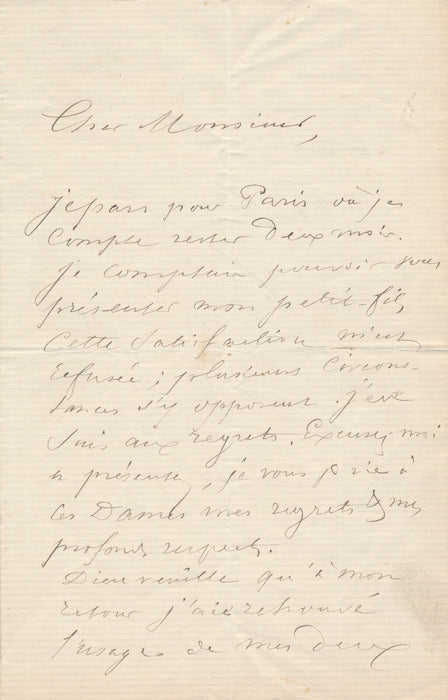 Cher Monsieur,
je pars pour Paris où je
compte rester deux mois.
je comptais pouvoir vous
présenter mon petit-fils,
Cette satisfaction m'est
refusée ; plusieurs circons-
tances s'y opposent. j'en
suis aux regrets. Excusez-moi
et présentez, je vous prie à
ces Dames mes regrets & mes
profonds respects.
Dieu veuille qu'à mon
retour j'aie retrouvé
l'usage de mes deux